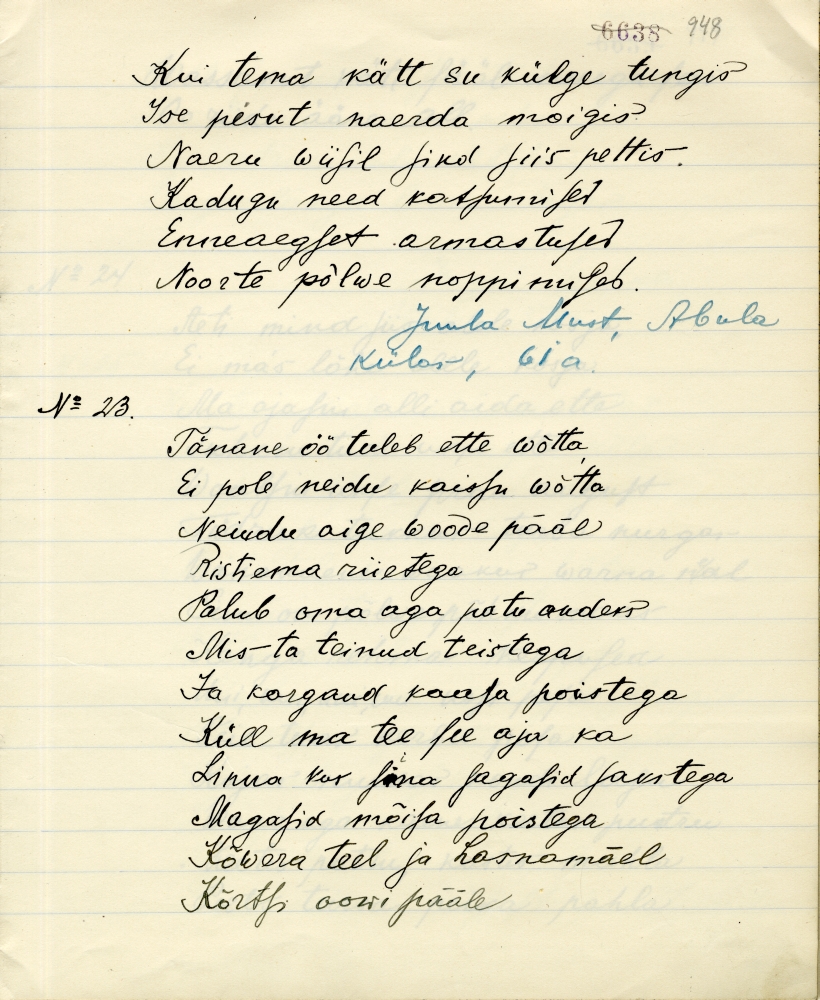 6638 948
Kui tema kätt su külge tungis
Ise pisut naerda moigis
Naeru wiisil sind siis pettis.
Kadugu need katsumised
Enneaegset armastused
Noorte põlwe noppimiseb.
Juula Must, Abula
Külas, 61 a.
№ 23.
Tänane öö tuleb ette wõtta
Ei pole neidu kaissu wõtta
Neiudu aige woode pääl
Ristiema riietega
Palub oma aga patu andeks
Mis-ta teinud teistega
Ja kargand kaasa poistega
Küll ma tee see aja ka
Linna kus sina sagasid sakstega
Magasid mõisa poistega
Kõwera teel ja Lasnamäel
Kõrtsi oowi pääle